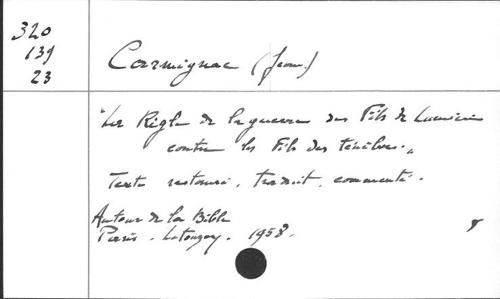 320
139
23
Carmignac (Jean.)
"La Règle de la guerre des Fils de Lumière
contre les Fils des ténèbres."
Texte restauré, traduit, commenté.
Autour de la Bible
Paris. Letouzey. 1958.